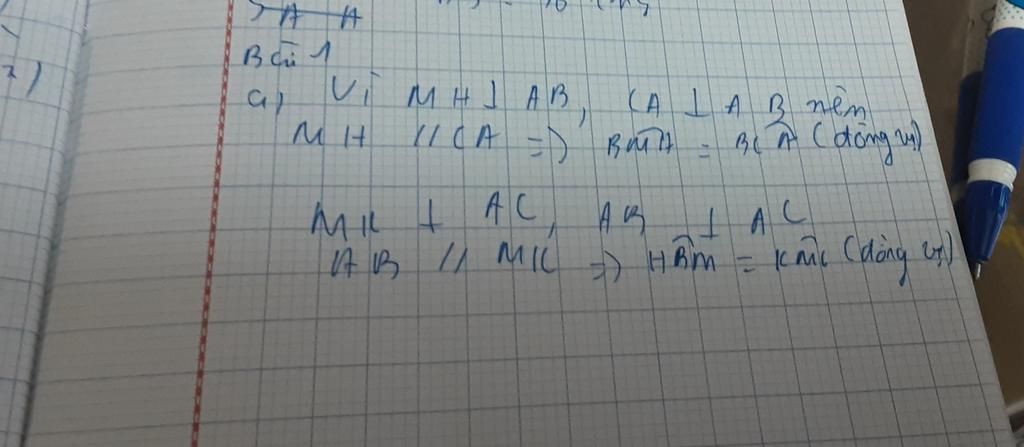 A A
Bài 1
a, Vì MH ⊥ AB, CA ⊥ AB nên
MH // CA => BMH = BCA (đồng vị)
MK ⊥ AC, AB ⊥ AC
AB // MK => HBM = KMC (đồng vị)